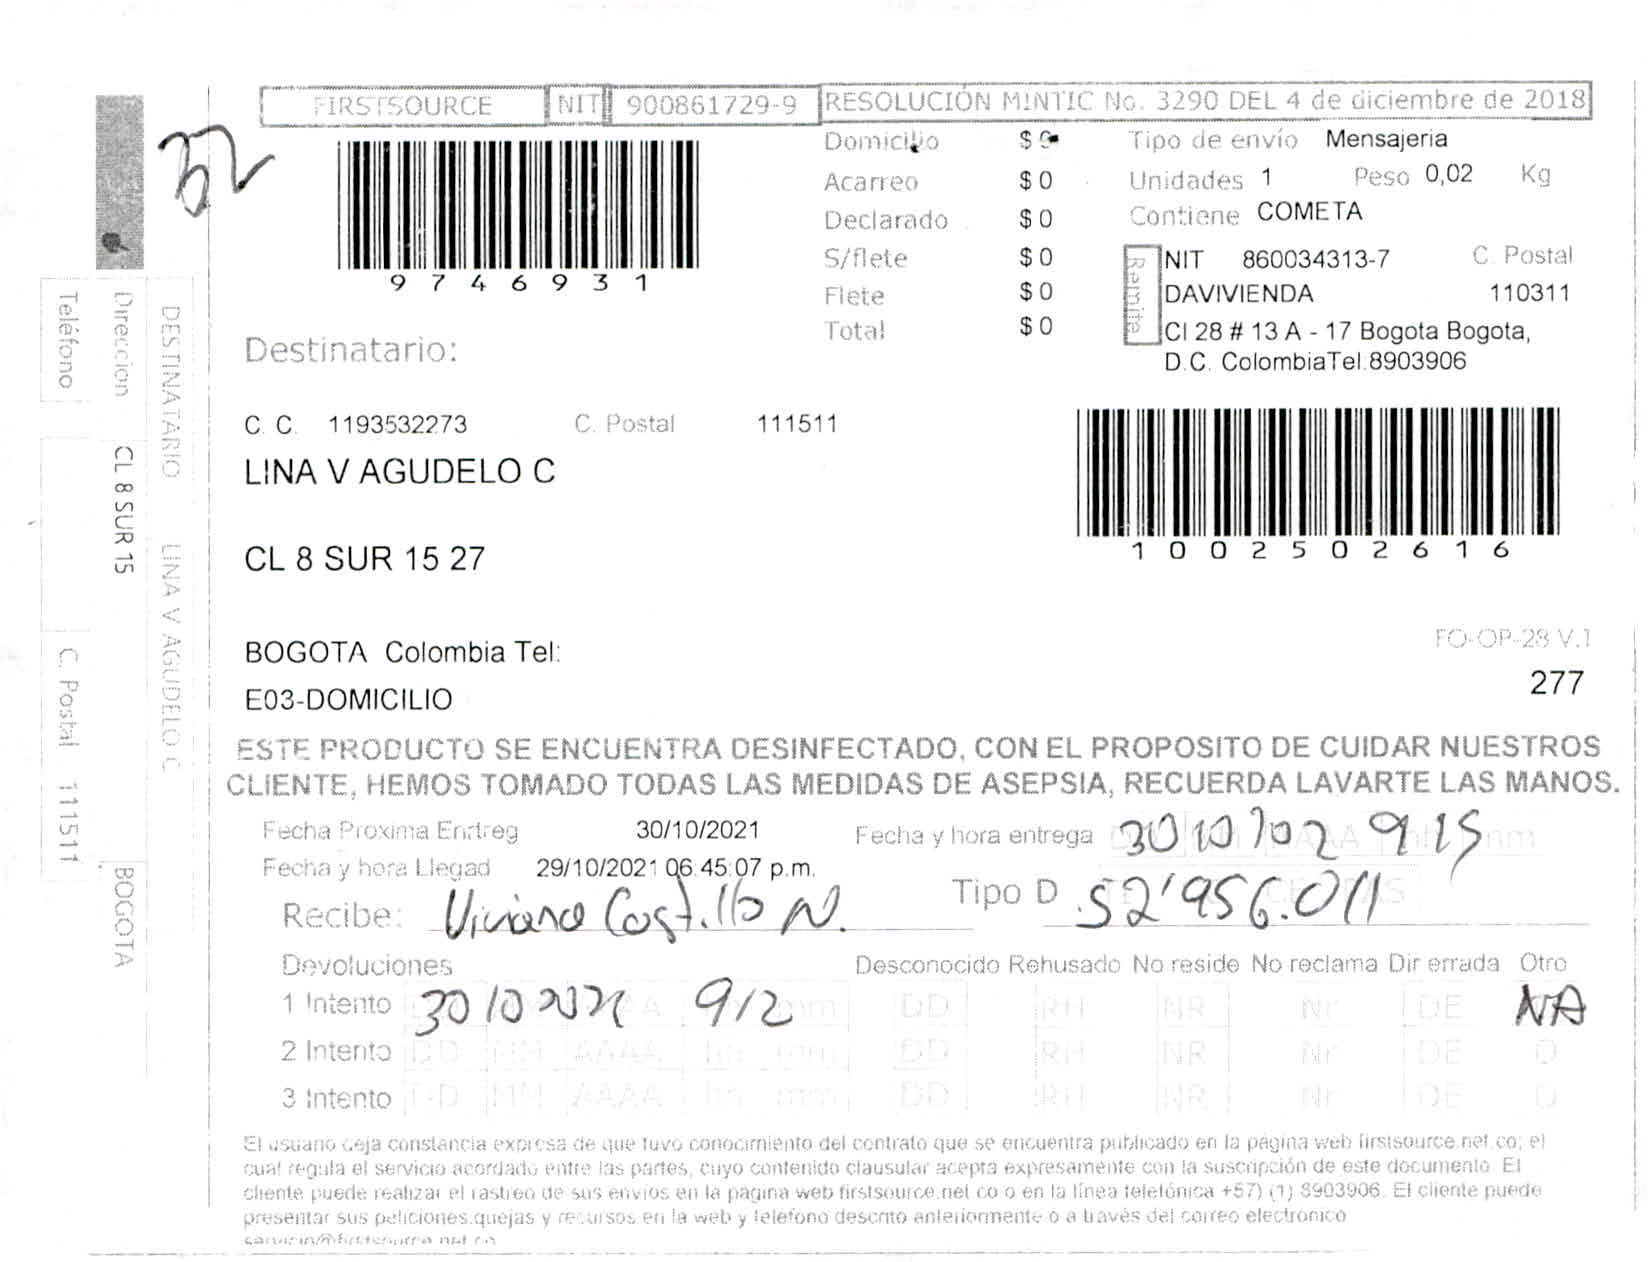 FIRSTSOURCE NIT 900861729-9 RESOLUCIÓN MINTIC No. 3290 DEL 4 de diciembre de 2018
32
9746931
Domicilio $ 0
Acarreo $ 0
Declarado $ 0
S/flete $ 0
Flete $ 0
Total $ 0
Tipo de envío Mensajeria
Unidades 1 Peso 0,02 Kg
Contiene COMETA
Remite
NIT 860034313-7 C. Postal
DAVIVIENDA 110311
Cl 28 # 13 A - 17 Bogota Bogota,
D.C. ColombiaTel:8903906
Destinatario:
C. C. 1193532273 C. Postal 111511
LINA V AGUDELO C
1002502616
CL 8 SUR 15 27
BOGOTA Colombia Tel:
E03-DOMICILIO
FO-OP-28 V.1
277
ESTE PRODUCTO SE ENCUENTRA DESINFECTADO, CON EL PROPOSITO DE CUIDAR NUESTROS
CLIENTE, HEMOS TOMADO TODAS LAS MEDIDAS DE ASEPSIA, RECUERDA LAVARTE LAS MANOS.
Fecha Proxima Entreg 30/10/2021 Fecha y hora entrega 30 10 202 915
Fecha y hora Llegad 29/10/2021 06:45:07 p.m.
Recibe: Viviana Castillo N. Tipo D 52'956.011
Devoluciones Desconocido Rehusado No reside No reclama Dir errada Otro
1 Intento 30 10 2021 912 DD RH NR Nr DE NA
2 Intento DD MM AAAA hh mm DD RH NR Nr DE O
3 Intento DD MM AAAA hh mm DD RH NR Nr DE O
El usuario deja constancia expresa de que tuvo conocimiento del contrato que se encuentra publicado en la página web firstsource.net.co; el
cual regula el servicio acordado entre las partes, cuyo contenido clausular acepta expresamente con la suscripción de este documento. El
cliente puede realizar el rastreo de sus envios en la página web firstsource.net.co o en la línea telefónica +57) (1) 8903906. El cliente puede
presentar sus peticiones,quejas y recursos en la web y telefono descrito anteriormente o a través del correo electronico
servicio@firstsource.net.co
DESTINATARIO LINA V AGUDELO C
Direccion CL 8 SUR 15 BOGOTA
Teléfono C. Postal 111511